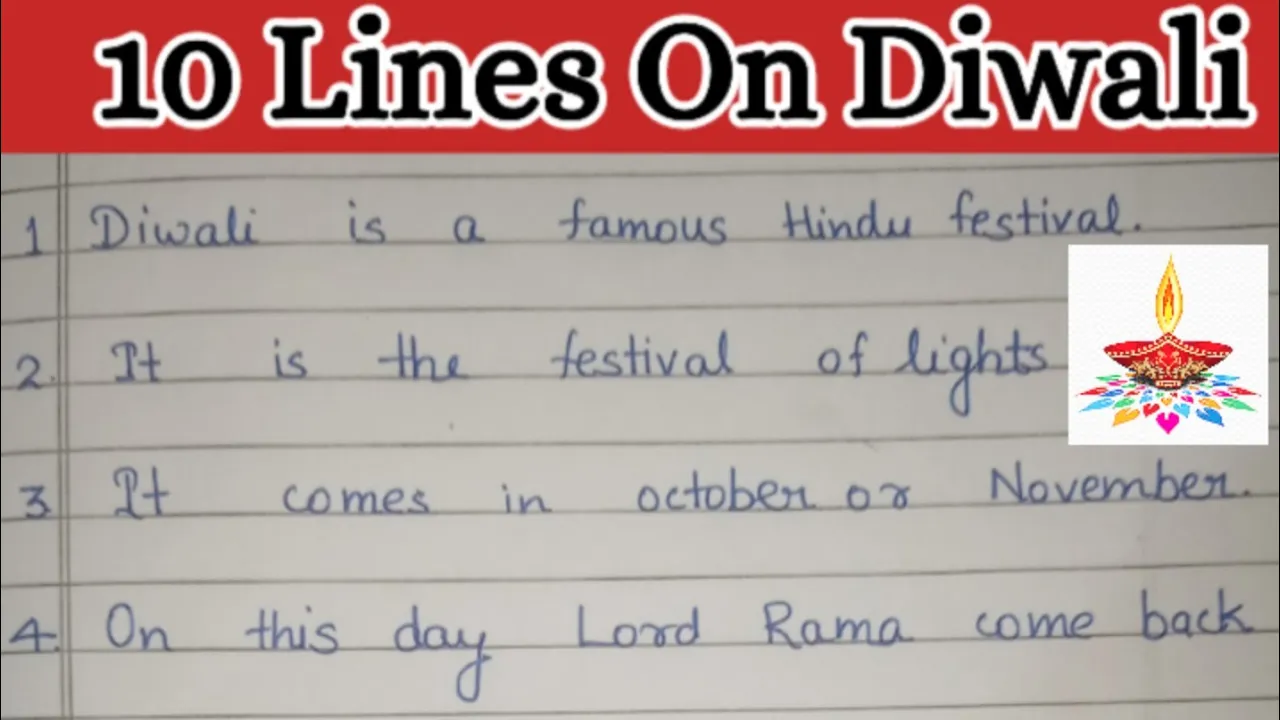 10 Lines On Diwali
1 Diwali is a famous Hindu festival.
2. It is the festival of lights
3 It comes in october or November.
4. On this day Lord Rama come back